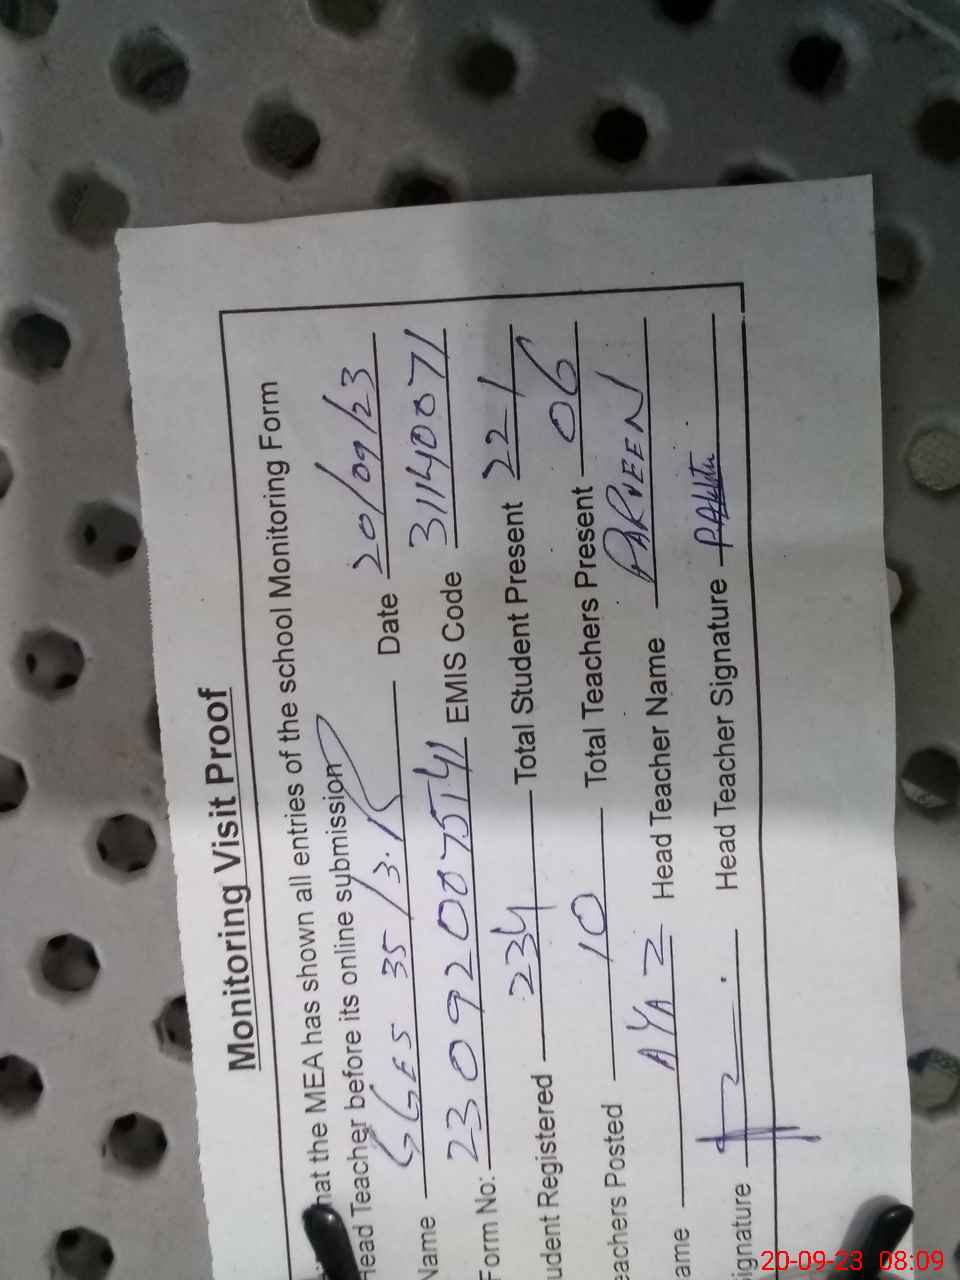 Monitoring Visit Proof
hat the MEA has shown all entries of the school Monitoring Form
Head Teacher before its online submission
Name GGES 35/3.R Date 20/09/23
Form No: 230920075141 EMIS Code 31140071
udent Registered 234 Total Student Present 221
eachers Posted 10 Total Teachers Present 06
ame AYAZ Head Teacher Name PARVEEN
ignature Head Teacher Signature
20-09-23 08:09